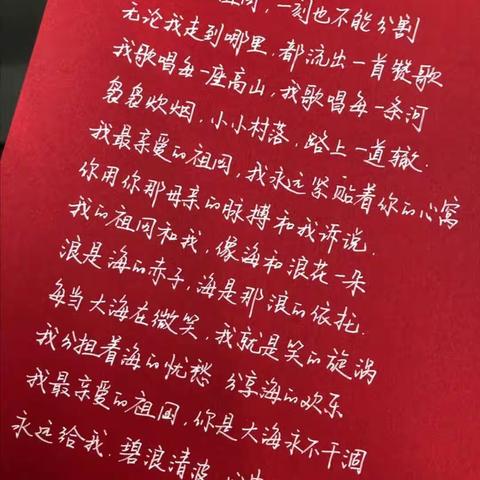 一刻也不能分割
无论我走到哪里，都流出一首赞歌
我歌唱每一座高山，我歌唱每一条河
袅袅炊烟，小小村落，路上一道辙.
我最亲爱的祖国，我永远紧贴着你的心窝
你用你那母亲的脉搏和我诉说.
我的祖国和我，像海和浪花一朵
浪是海的赤子，海是那浪的依托.
每当大海在微笑，我就是笑的旋涡
我分担着海的忧愁 分享海的欢乐
我最亲爱的祖国，你是大海永不干涸
永远给我.碧浪清波